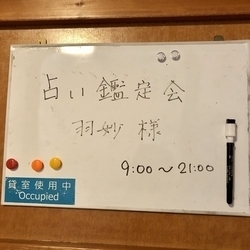 占い鑑定会
羽妙様
9:00〜21:00
貸室使用中
Occupied